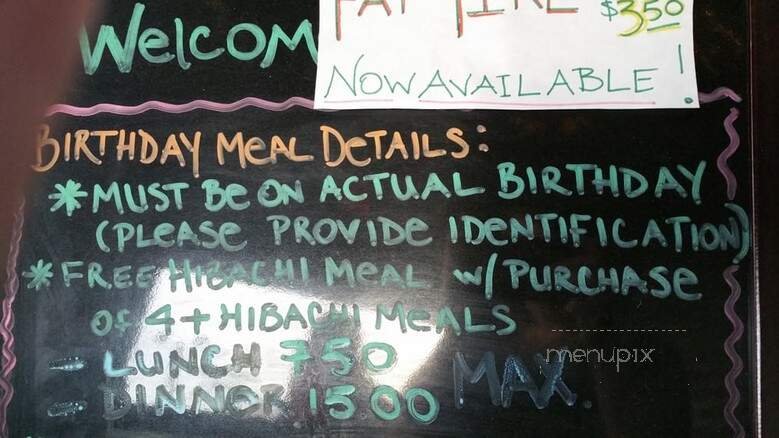 WelcOM
FAT TIRE $3.50
NOW AVAILABLE!
BIRTHDAY MeAL DeTAILS:
* MUST Be ON ACTUAL BIRTHDAY
(PLeASe PROVIDE IDeNTIFICATION)
* FREE HIBACHI MeAL w/ PURCHASe
OF 4+ HIBACHI MeALS
- LUNCH 7 50
- DINNER 15 00 MAX.
menupix